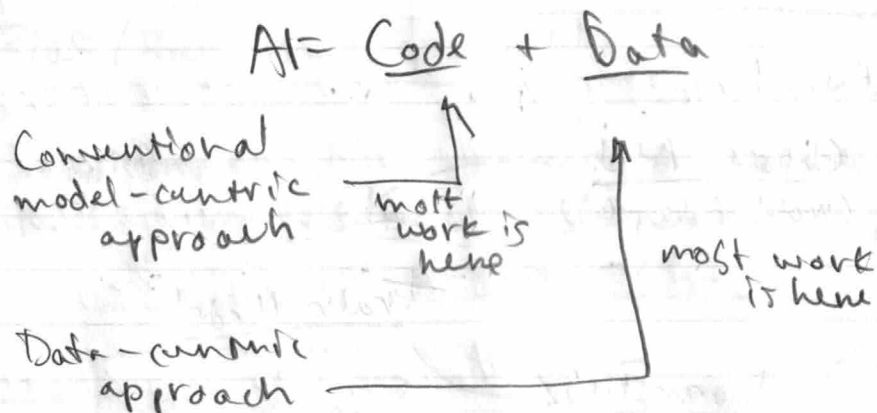 AI = Code + Data
Conventional
model-centric
approach
most
work is
here
most work
is here
Data-centric
approach